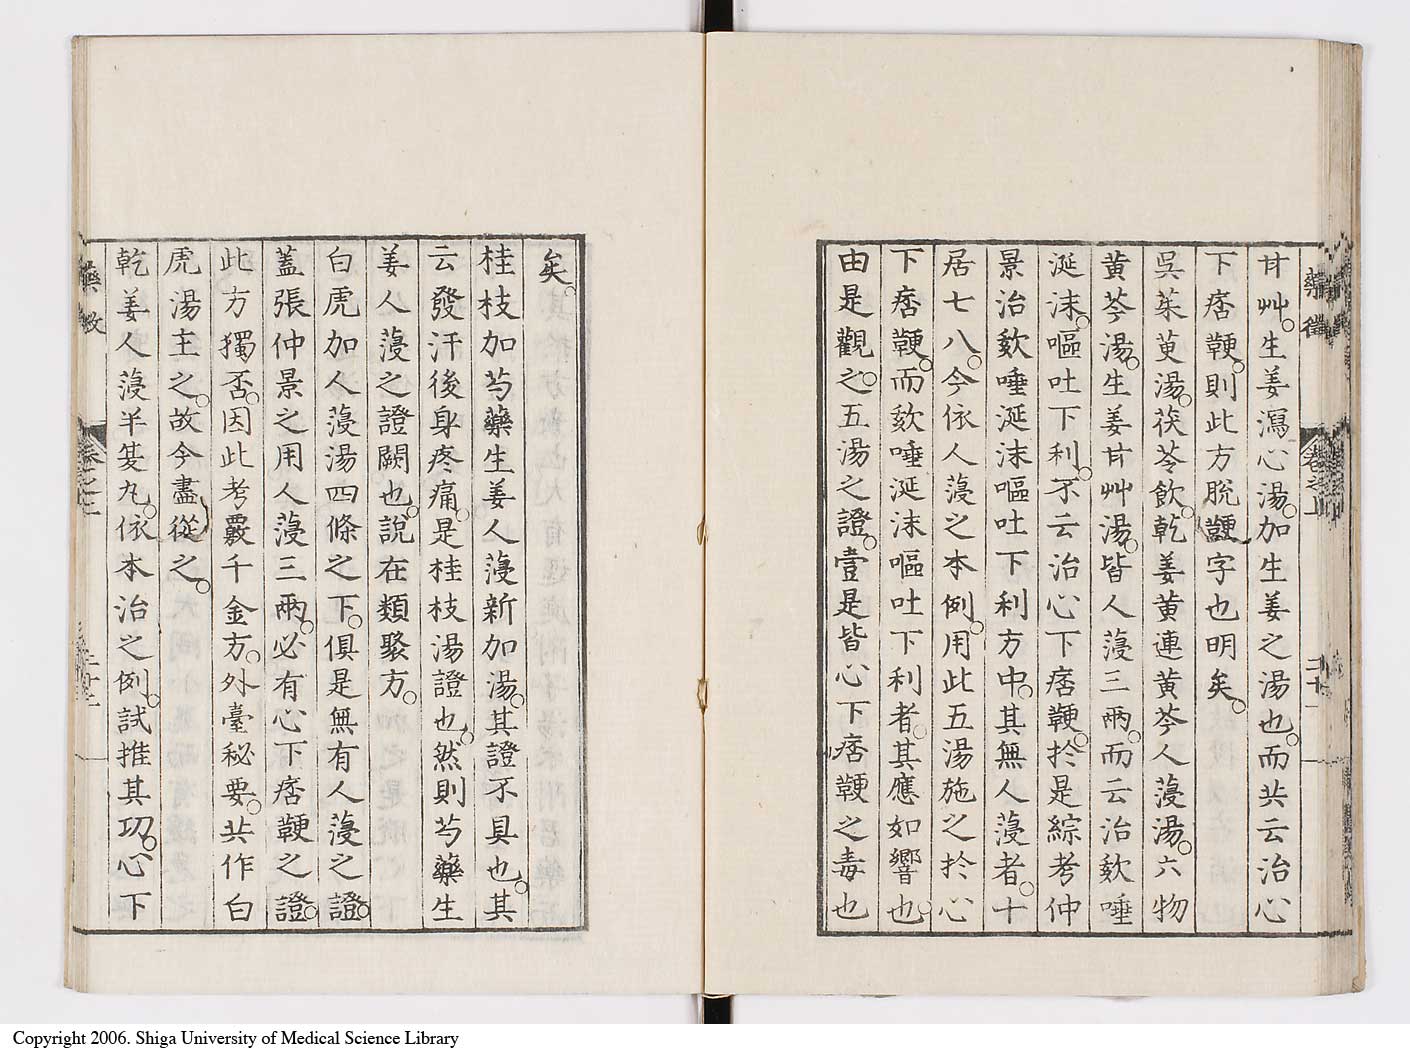 甘艸。生姜瀉心湯。加生姜之湯也。而共云治心
下痞鞕。則此方脫鞕字也明矣。
吳茱萸湯。茯苓飲。乾姜黃連黃芩人蓡湯。六物
黃芩湯。生姜甘艸湯。皆人蓡三兩。而云治欬唾
涎沫。嘔吐下利。不云治心下痞鞕。於是綜考仲
景治欬唾涎沫嘔吐下利方中。其無人蓡者。十
居七八。今依人蓡之本例。用此五湯施之於心
下痞鞕。而欬唾涎沫嘔吐下利者。其應如響也。
由是觀之。五湯之證。壹是皆心下痞鞕之毒也
矣。
桂枝加芍藥生姜人蓡新加湯。其證不具也。其
云發汗後身疼痛。是桂枝湯證也。然則芍藥生
姜人蓡之證闕也。說在類聚方。
白虎加人蓡湯四條之下。俱是無有人蓡之證。
蓋張仲景之用人蓡三兩。必有心下痞鞕之證。
此方獨否。因此考覈千金方。外臺秘要。共作白
虎湯主之。故今盡從之。
乾姜人蓡半夏丸。依本治之例。試推其功。心下
藥徵
卷之上
二十
Copyright 2006. Shiga University of Medical Science Library